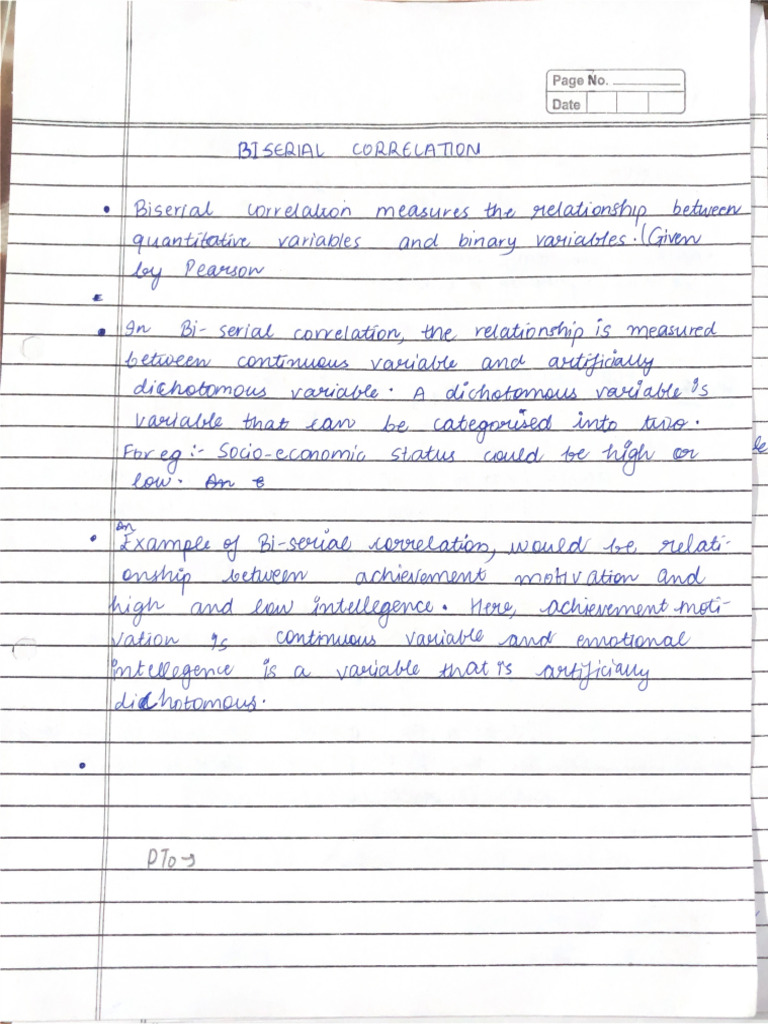 Page No.
Date
BISERIAL CORRELATION
• Biserial correlation measures the relationship between
quantitative variables and binary variables. (Given
by Pearson
• In Bi-serial correlation, the relationship is measured
between continuous variable and artificially
dichotomous variable. A dichotomous variable is
variable that can be categorised into two.
For eg :- Socio-economic status could be high or
low. An
An
• Example of Bi-serial correlation, would be relati-
onship between achievement motivation and
high and low intellegence. Here, achievement moti-
vation is continuous variable and emotional
intellegence is a variable that is artificially
dichotomous.
•
PTO →